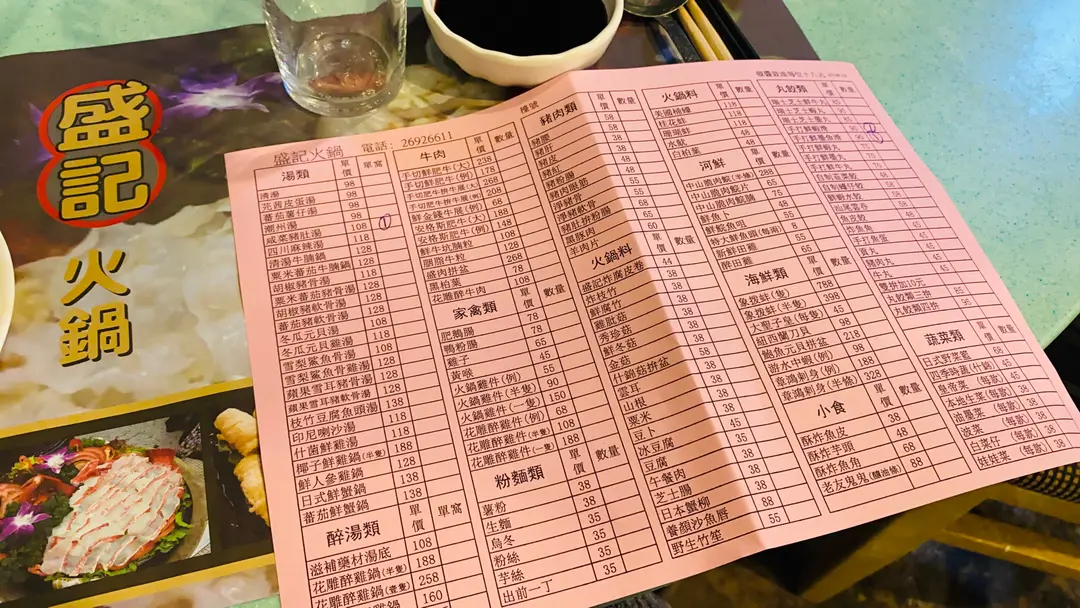 盛記
火鍋
盛記火鍋 電話: 26926611 檯號
湯類 單價 單窩
清湯 98
芫茜皮蛋湯 98
蕃茄薯仔湯 98
潮州湯 98
咸菜豬肚湯 108
四川麻辣湯 118
清湯牛腩鍋
粟米蕃茄牛腩鍋
胡椒豬骨湯
粟米蕃茄豬骨湯
胡椒豬軟骨湯
蕃茄豬軟骨湯
冬瓜粒貝湯
冬瓜元貝雞湯
雪梨鯊魚骨湯
雪梨鯊魚骨雞湯
蘋果雪耳豬骨湯
蘋果雪耳豬軟骨湯
枝竹豆腐魚頭湯
印尼喇沙湯 118
什菌鮮雞湯 118
椰子鮮雞鍋(半隻) 188
鮮人參雞鍋 128
日式鮮蟹鍋 138
蕃茄鮮蟹鍋 138
醉湯類 單價 單窩
滋補藥材湯底 108
花雕醉雞鍋(半隻) 188
花雕醉雞鍋(壹隻) 258
160
牛肉 單價 數量
手切鮮肥牛(大) 238
手切鮮肥牛(例) 178
手切肥牛拚牛展(大) 268
手切肥牛拚牛展(例) 208
鮮金錢牛展(例) 68
安格斯肥牛(大) 188
安格斯肥牛(例) 148
鮮牛坑腩粒 108
胭脂牛肉 268
盛肉拼盆 78
黑柏葉 108
花雕醉牛肉
家禽類 單價 數量
肥鵝腸 78
鴨粉腸 78
雞子 65
黃喉 45
火鍋雞件(例) 55
火鍋雞件(半隻) 90
火鍋雞件(一隻) 150
花雕醉雞件(例) 68
花雕醉雞件(半隻) 108
花雕醉雞件(一隻) 188
粉麵類 單價 數量
薯粉 38
生麵 38
烏冬 35
粉絲 35
芋絲 35
出前一丁 35
豬肉類 單價 數量
豬腰 58
豬肝 58
豬皮 38
豬紅 48
豬粉腸
豬肉眼筋
淨豬膏
淨豬軟骨
豬肚拼粉腸
黑豚肉
羊肉片 60
火鍋料 單價 數量
盛記炸腐皮卷 44
炸枝竹 38
鮮腐竹 38
雞肶菇 38
秀珍菇 38
鮮冬菇 38
金菇 38
什錦菇拼盆 58
雲耳 38
山根 38
粟米 38
豆卜
冰豆腐
豆腐
午餐肉
芝士腸
日本蟹柳 38
養顏沙魚唇 88
野生竹笙 55
火鍋料 單價 數量
美國桶蠔 118
桂花蚌 118
珊瑚蚌 118
水魷 48
白柏葉 48
河鮮 單價 數量
中山脆肉鯇(半條) 288
中山脆肉鯇片 65
中山脆肉鯇腩 75
鮮魚卜 48
鮮鯇魚咀 55
特大鮮魚頭(每兩) 8
新鮮田雞 55
醉田雞 65
海鮮類 單價 數量
象拔蚌(隻) 788
象拔蚌(半隻) 398
大聖子皇(每隻) 45
紐西蘭刀貝 98
鮑魚元貝拼盆 218
游水中蝦(例) 98
章鴻刺身(例) 188
章鴻刺身(半條) 328
小食 單價 數量
酥炸魚皮 38
酥炸芋頭 38
酥炸魚角 48
老友鬼鬼(釀油條) 88
丸餃類 單價 數量
手打鮮蝦滑
手打鮮蝦丸
手打鮮墨丸
自制韮菜餃
自制雞仔餃
鮮蝦水餃
炸魚蛋
手打魚蛋
豬肉丸 45
牛丸 45
雙拼加10元
丸餃類三拚 85
丸餃類四拚 95
蔬菜類 單價 數量
日式野菜籃 68
四季時蔬(什錦) 45
皇帝菜(每款) 45
本地生菜(每款) 38
油墨菜(每款) 38
菠菜(每款) 38
白菜仔(每款) 38
娃娃菜(每款) 38